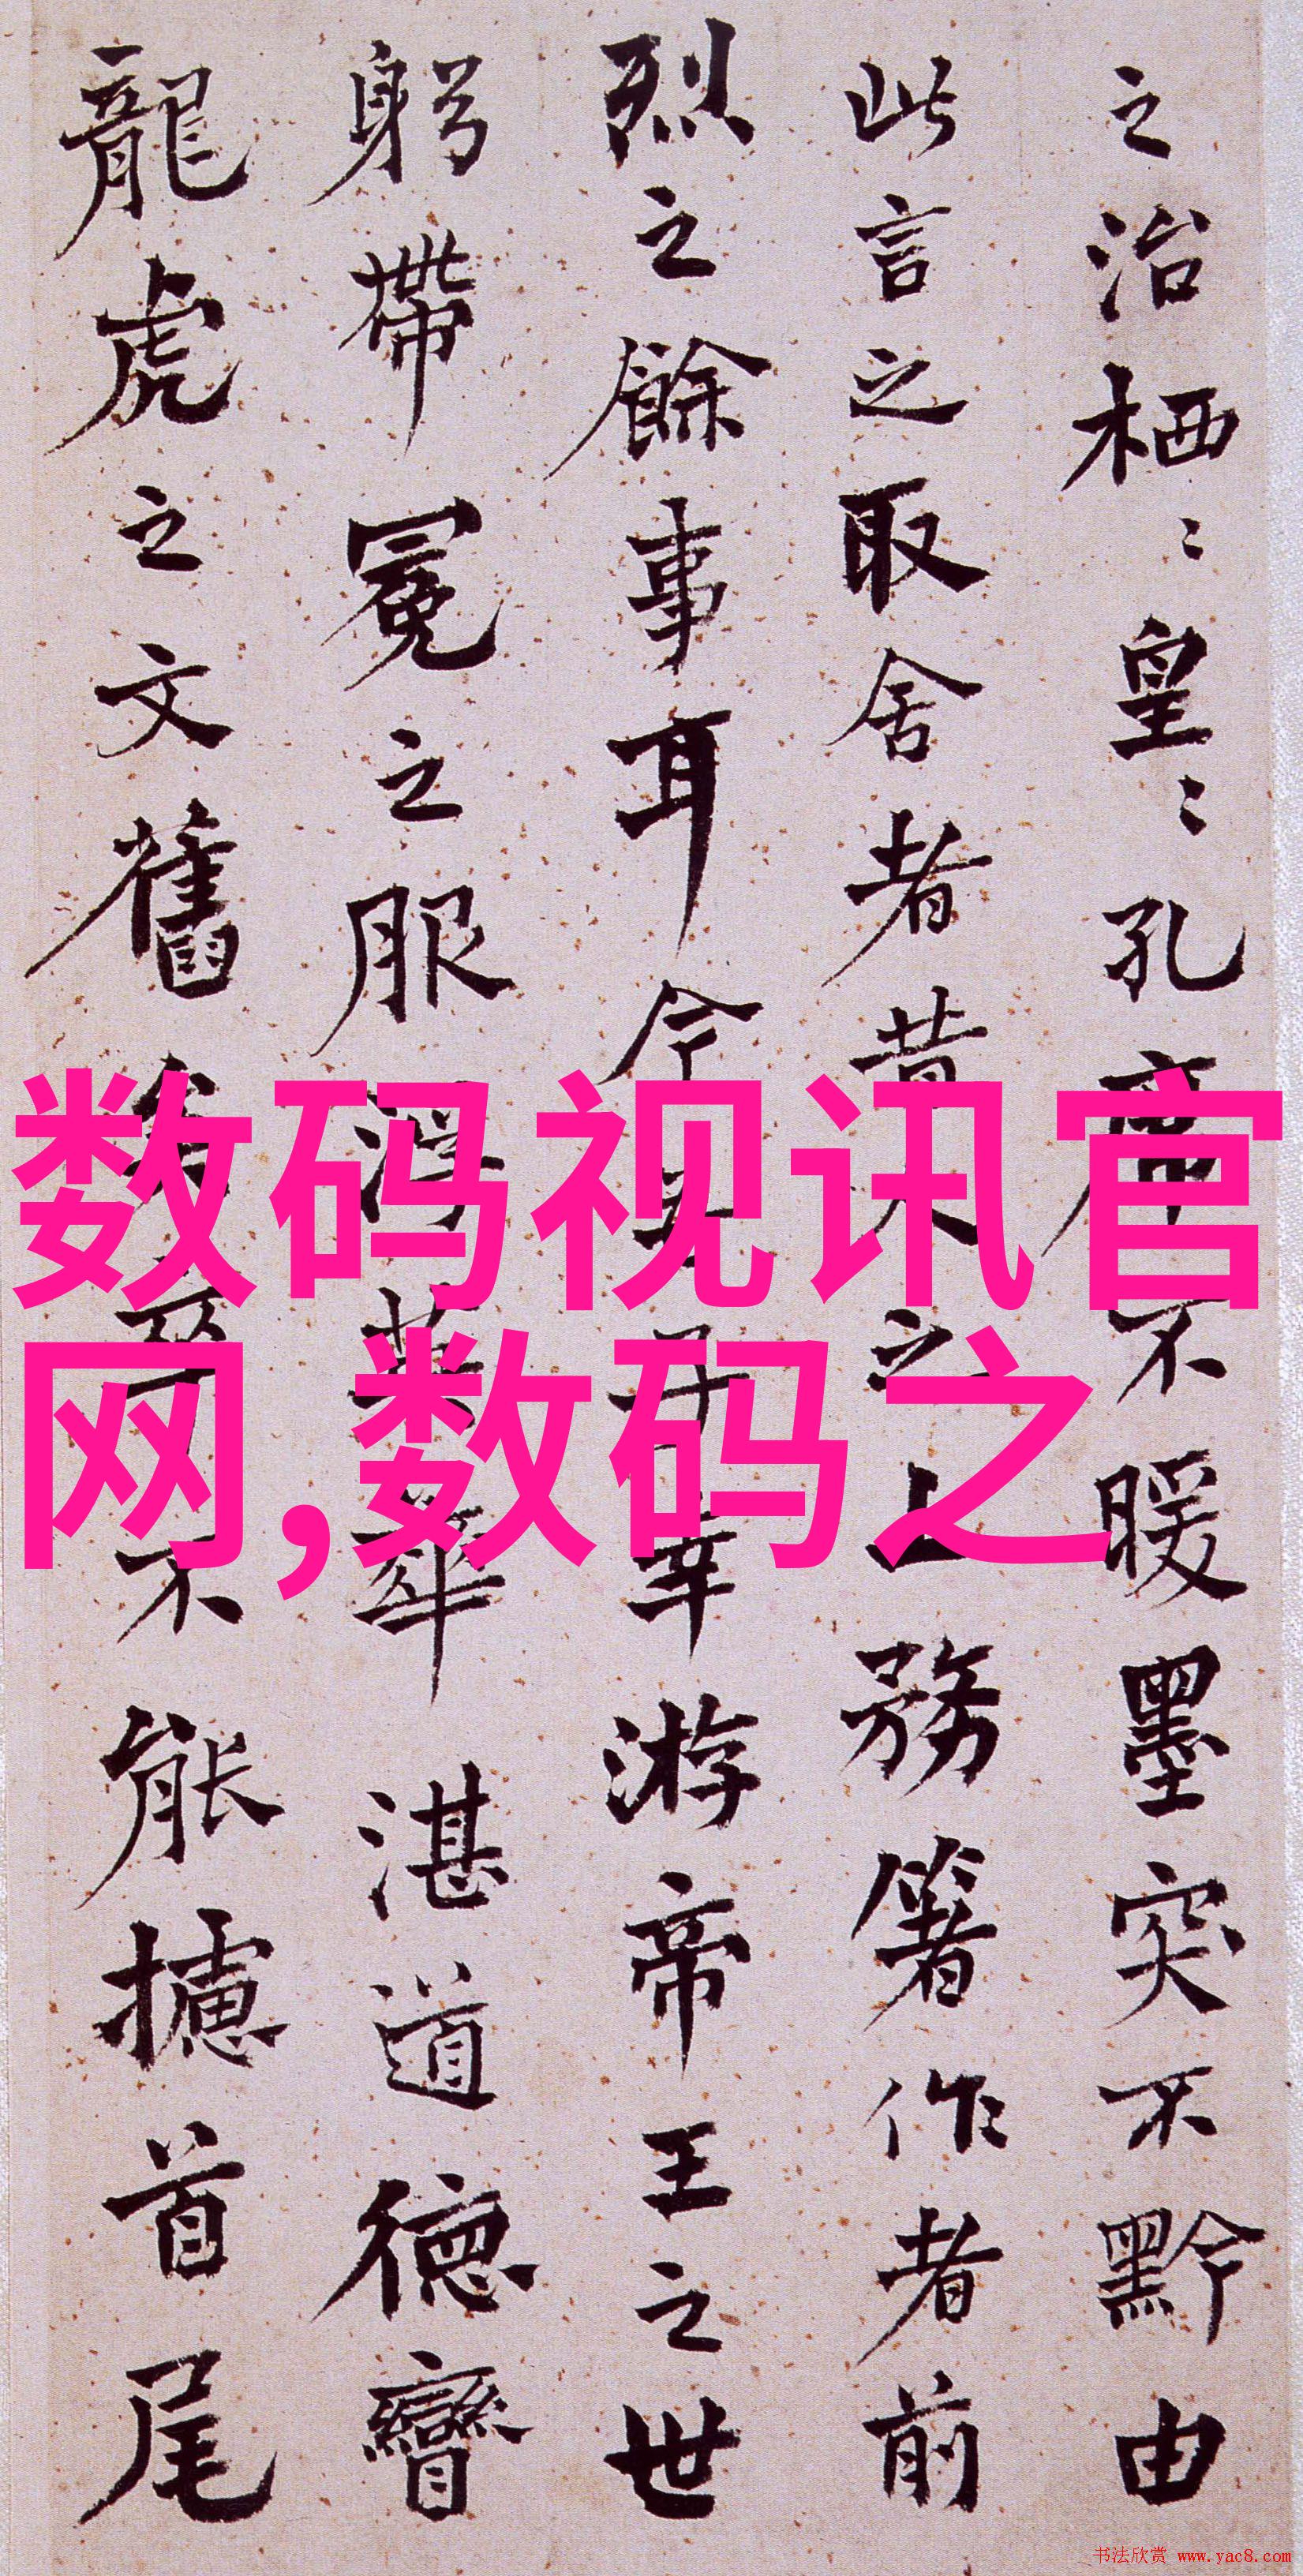 之治栖〻皇〻孔席不暖墨突不黔由
此言之取舍者昔人之上務箸作者前
烈之餘事耳今吾子幸游帝王之世
躬帶冕之服浮英華湛道德矕
龍虎之文舊矣卒不能攄首尾
数码视讯官
网,数码之
书法欣赏 www.yac8.com